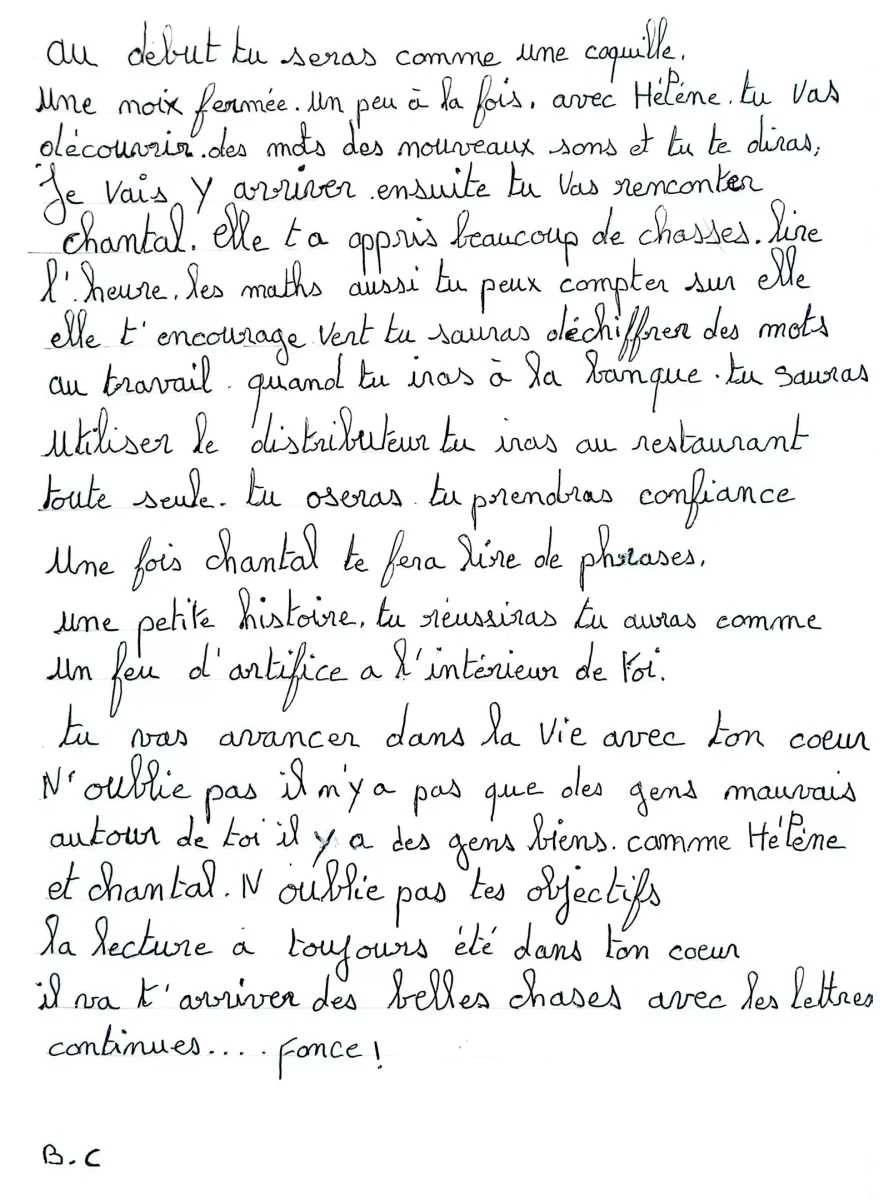 au début tu seras comme une coquille.
Une noix fermée. Un peu à la fois, avec Hélène. tu vas
découvrir. des mots des nouveaux sons et tu te diras,
Je vais y arriver. ensuite tu vas renconter
chantal. elle t a appris beaucoup de chasses. lire
l'heure, les maths aussi tu peux compter sur elle
elle t'encourage vent tu sauras déchiffrer des mots
au travail. quand tu iras à la banque. tu sauras
utiliser le distributeur tu iras au restaurant
toute seule. tu oseras. tu prendras confiance
Une fois chantal te fera lire de phrases,
une petite histoire, tu réussiras tu auras comme
un feu d'artifice a l'intérieur de toi.
tu vas avancer dans la vie avec ton coeur
N'oublie pas il n'y a pas que des gens mauvais
autour de toi il y a des gens biens. comme Hélène
et chantal. N oublie pas tes objectifs
la lecture a toujours été dans ton coeur
il va t'arriver des belles chases avec les lettres
continues.... Fonce !
B. C